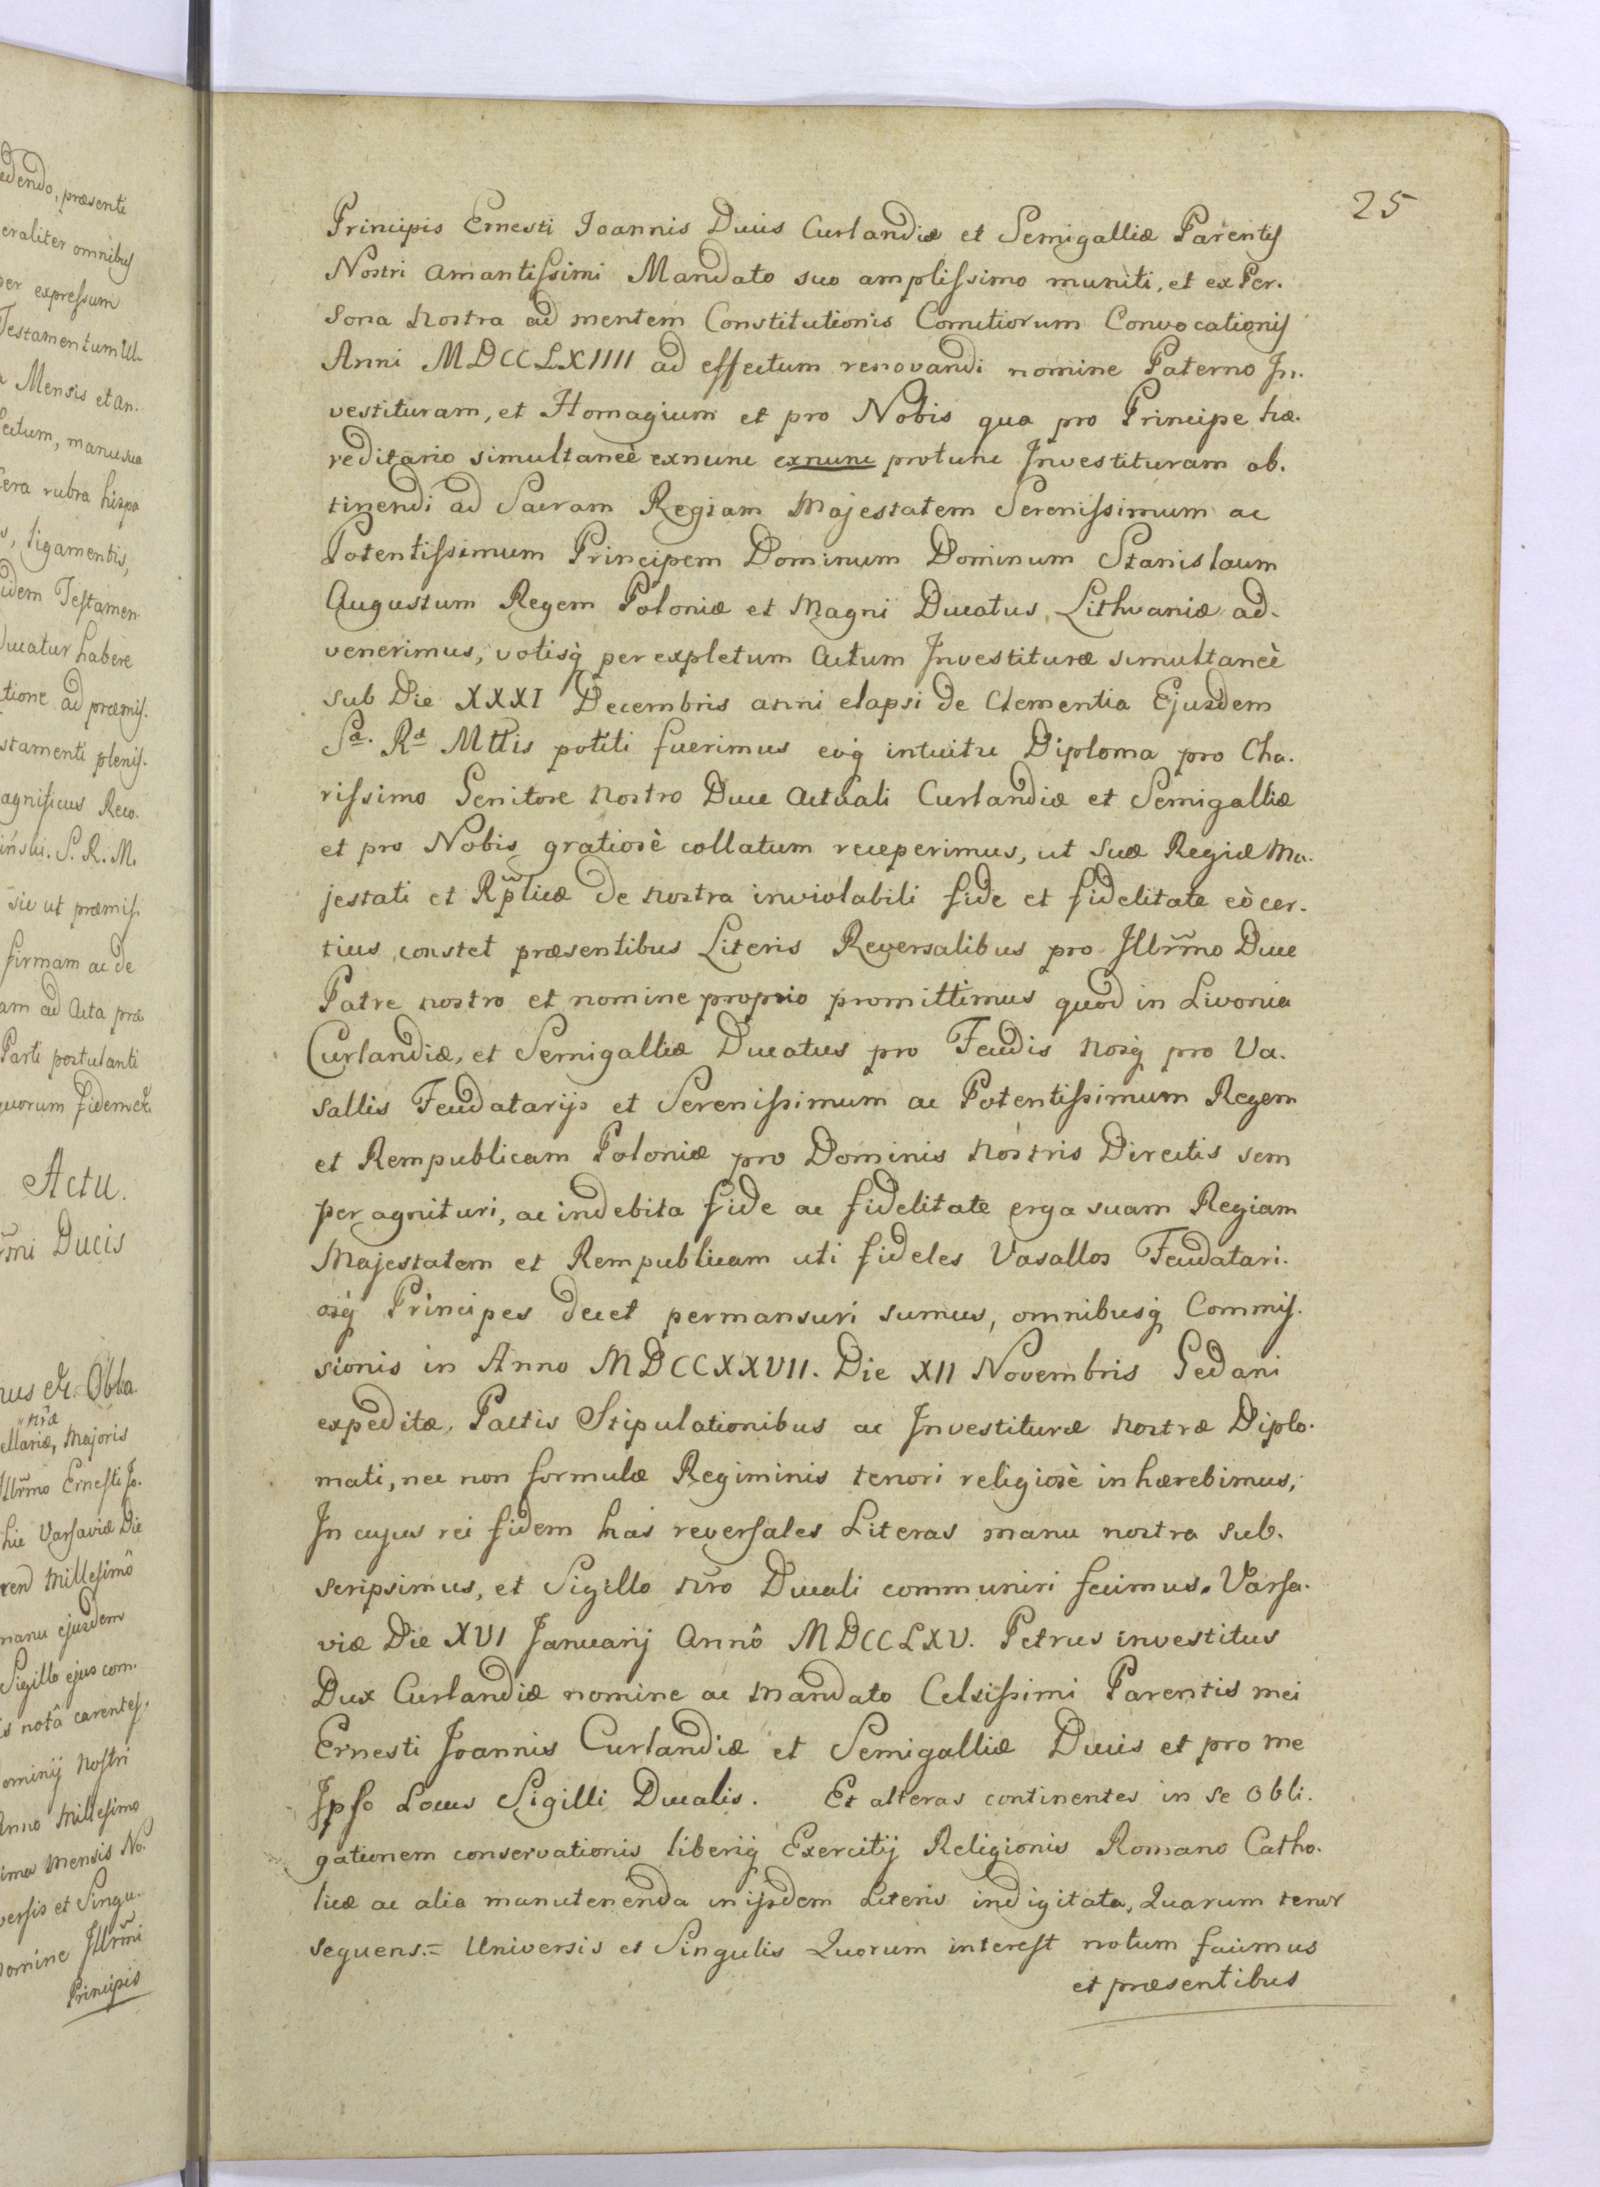 edendo, præsenti
eraliter omnibus
per expressum
Testamentum Ill-
a Mensis et an.
lectum, manu sua
Cera rubra hispa
s, ligamentis,
idem Testamen
Ducatur habere
tione ad præmis.
stamenti plenis.
agnificus Reco.
inski. S. R. M.
sic ut præmis.
firmam ac de
am ad Acta præ
Parti postulanti
quorum fidem etc.
Actu.
r̃mi Ducis
nus &. Obla.
nr̃æ
ellariæ, Majoris
Illr̃mo Ernesti Jo.
hic Varsaviæ Die
Millesimô
manu ejusdem
Sigillo ejus com.
is notâ carentes.
ominij Nostri
Anno Millesimo
ima Mensis No.
versis et Singu.
nomine Illr̃mi
Principis
25
Principis Ernesti Joannis Ducis Curlandiæ et Semigalliæ Parentis
Nostri amantissimi Mandato suo amplissimo muniti, et ex Per.
sona nostra ad mentem Constitutionis Comitiorum Convocationis
Anni MDCCLXIIII ad effectum renovandi nomine Paterno In.
vestituram, et Homagium et pro Nobis qua pro Principe hæ.
reditario simultaneè exnunc exnunc protunc Investituram ob.
tinendi ad Sacram Regiam Majestatem Serenissimum ac
Potentissimum Principem Dominum Dominum Stanislaum
Augustum Regem Poloniæ et Magni Ducatus Lithvaniæ ad-
venerimus, votisq́ per expletum Actum Investituræ simultaneè
sub Die XXXI Decembris anni elapsi de Clementia Ejusdem
Sa. Ra Mttis potiti fuerimus eoq́ intuitu Diploma pro Cha.
rissimo Genitore nostro Duce Actuali Curlandiæ et Semigalliæ
et pro Nobis gratiosè collatum receperimus, ut Suæ Regiæ Ma.
jestati et Rplicæ de nostra inviolabili fide et fidelitate eò cer.
tius constet præsentibus Literis Reversalibus pro Illr̃mo Duce
Patre nostro et nomine proprio promittimus quod in Livonia
Curlandiæ, et Semigalliæ Ducatus pro Feudis nosq́ pro Va.
sallis Feudatarijs et Serenissimum ac Potentissimum Regem
et Rempublicam Poloniæ pro Dominis nostris Directis sem
per agnituri, ac indebita fide ac fidelitate erga suam Regiam
Majestatem et Rempublicam uti fideles Vasallos Feudatari.
osq́ Principes decet permansuri sumus, omnibusq́ Commis.
sionis in Anno MDCCXXVII. Die XII Novembris Gedani
expeditæ, Pactis Stipulationibus ac Investituræ nostræ Diplo.
mati, nec non formulæ Regiminis tenori religiosè inhærebimus,
In cujus rei fidem has reversales Literas manu nostra sub.
scripsimus, et Sigillo nr̃o Ducali communiri fecimus. Varsa.
viæ Die XVI Januarij Annô MDCCLXV. Petrus investitus
Dux Curlandiæ nomine ac Mandato Celsissimi Parentis mei
Ernesti Joannis Curlandiæ et Semigalliæ Ducis et pro me
Ipso Locus Sigilli Ducalis. Et alteras continentes in se Obli.
gationem conservationis liberiq́ Exercitij Religionis Romano Catho.
licæ ac alia manutenenda in ijsdem Literis indigitata, Quarum tenor
sequens.= Universis et Singulis Quorum interest notum facimus
et præsentibus